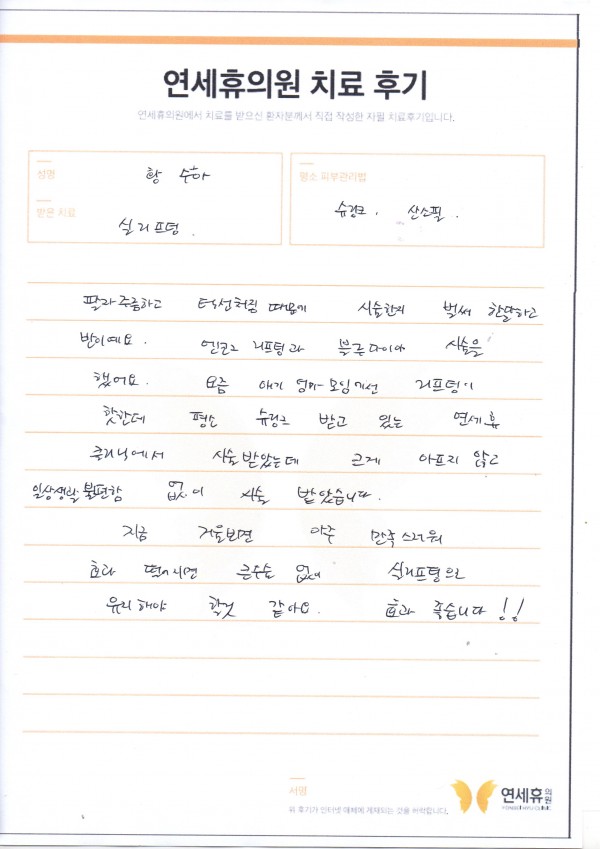 연세휴의원 치료 후기
연세휴의원에서 치료를 받으신 환자분께서 직접 작성한 자필 치료후기입니다.
성명
황 수아
받은 치료
실리프팅.
평소 피부관리법
슈링크. 산소필.
팔자주름하고 턱선처짐 때문에 시술한지 벌써 한달하고
반이예요. 엔코 리프팅과 블루다이아 시술을
했어요. 요즘 애기 엄마 모임에선 리프팅이
핫한데 평소 슈링크 받고 있는 연세휴
클리닉에서 시술받았는데 크게 아프지 않고
일상생활 불편함 없이 시술 받았습니다.
지금 거울보면 아주 만족스러워
효과 떨어지면 큰수술 없이 실리프팅으로
유지해야 할것 같아요. 효과 좋습니다!!
서명
위 후기가 인터넷 매체에 게재되는 것을 허락합니다.
연세휴의원
YONSEI HYU CLINIC